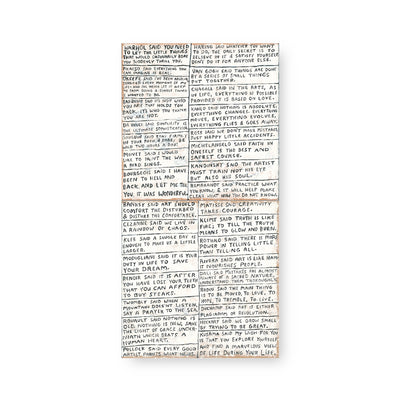 WARHOL SAID YOU NEED
TO LET THE LITTLE THINGS
THAT WOULD ORDINARILY BORE
YOU SUDDENLY THRILL YOU.
PICASSO SAID EVERYTHING YOU
CAN IMAGINE IS REAL.
O'KEEFE SAID I'VE BEEN
I WANTED TO DO.
BASQUIAT SAID IT'S NOT WHO
YOU ARE THAT HOLDS YOU
BACK, IT'S WHO YOU THINK
YOU ARE NOT.
DA VINCI SAID SIMPLICITY IS
THE ULTIMATE SOPHISTICATION.
MONET SAID I WOULD
LIKE TO PAINT THE WAY
A BIRD SINGS.
BOURGEOIS SAID I HAVE
BEEN TO HELL AND
BACK, AND LET ME TELL
YOU, IT WAS WONDERFUL.
BANKSY SAID ART SHOULD
COMFORT THE DISTURBED
& DISTURB THE COMFORTABLE.
CEZANNE SAID WE LIVE IN
A RAINBOW OF CHAOS.
KLEE SAID A SINGLE DAY IS
ENOUGH TO MAKE US A LITTLE
LARGER.
MODIGLIANI SAID IT IS YOUR
DUTY IN LIFE TO SAVE
YOUR DREAM.
RENOIR SAID IT IS AFTER
YOU HAVE LOSE YOUR TEETH
THAT YOU CAN AFFORD
TO BUY STEAKS.
TWOMBLY SAID WHEN A
MOUNTAIN DOESN'T LISTEN,
SAY A PRAYER TO THE SEA.
ROUAULT SAID NOTHING IS
OLD, NOTHING IS NEW, SAVE
THE LIGHT OF GRACE UNDER-
NEATH WHICH BEATS A
HUMAN HEART.
POLLOCK SAID EVERY GOOD
ARTIST PAINTS WHAT HE IS.
HARING SAID WHATEVER YOU WANT
TO DO, THE ONLY SECRET IS TO
BELIEVE IN IT & SATISFY YOURSELF.
DON'T DO IT FOR ANYONE ELSE.
VAN GOGH SAID THINGS ARE DONE
BY A SERIES OF SMALL THINGS
PUT TOGETHER.
CHAGALL SAID IN THE ARTS, AS
IN LIFE, EVERYTHING IS POSSIBLE
PROVIDED IT IS BASED ON LOVE.
KAHLO SAID NOTHING IS ABSOLUTE.
EVERYTHING CHANGES, EVERYTHING
MOVES, EVERYTHING EVOLVES,
EVERYTHING FLIES & GOES AWAY.
ROSS SAID WE DON'T MAKE MISTAKES
JUST HAPPY LITTLE ACCIDENTS.
MICHELANGELO SAID FAITH IN
ONESELF IS THE BEST AND
SAFEST COURSE.
KANDINSKY SAID THE ARTIST
MUST TRAIN NOT HIS EYE
BUT ALSO HIS SOUL.
REMBRANDT SAID PRACTICE WHAT
YOU KNOW, & IT WILL HELP MAKE
CLEAR WHAT NOW YOU DO NOT KNOW
MATISSE SAID CREATIVITY
TAKES COURAGE.
KLIMT SAID TRUTH IS LIKE
FIRE; TO TELL THE TRUTH
MEANS TO GLOW AND BURN.
ROTHKO SAID THERE IS MORE
POWER IN TELLING LITTLE
THAN TELLING ALL.
RIVERA SAID ART IS LIKE HAM
IT NOURISHES PEOPLE.
DALI SAID MISTAKES ARE ALMOST
ALWAYS OF A SACRED NATURE.
UNDERSTAND THEM THOROUGHLY.
RODIN SAID THE MAIN THING
IS TO BE MOVED, TO LOVE, TO
HOPE, TO TREMBLE, TO LIVE.
DUCHAMP SAID ART IS EITHER
PLAGIARISM OR REVOLUTION.
WE GROW SMALL
BY TRYING TO BE GREAT.
KUSAMA SAID MY WISH FOR YOU
IS THAT YOU EXPLORE YOURSELF
AND FIND A MARVELOUS VIEW
OF LIFE DURING YOUR LIFE.